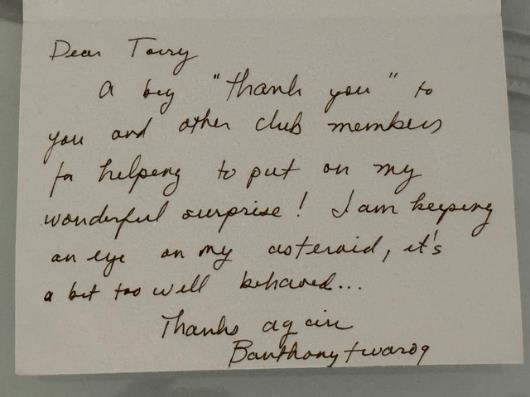 Dear Torry
A big "thank you" to
you and other club members
for helping to put on my
wonderful surprise! I am keeping
an eye on my asteroid, it's
a bit too well behaved...
Thanks again